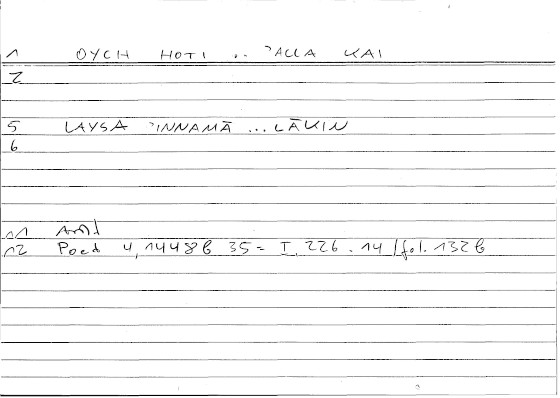 1 OYCH HOTI .. 'ALLA KAI
2
5 LAYSA 'INNAMĀ ... LĀKIN
6
11
12 Poet 4,1448b 35 = I, 226.14 / fol. 132b